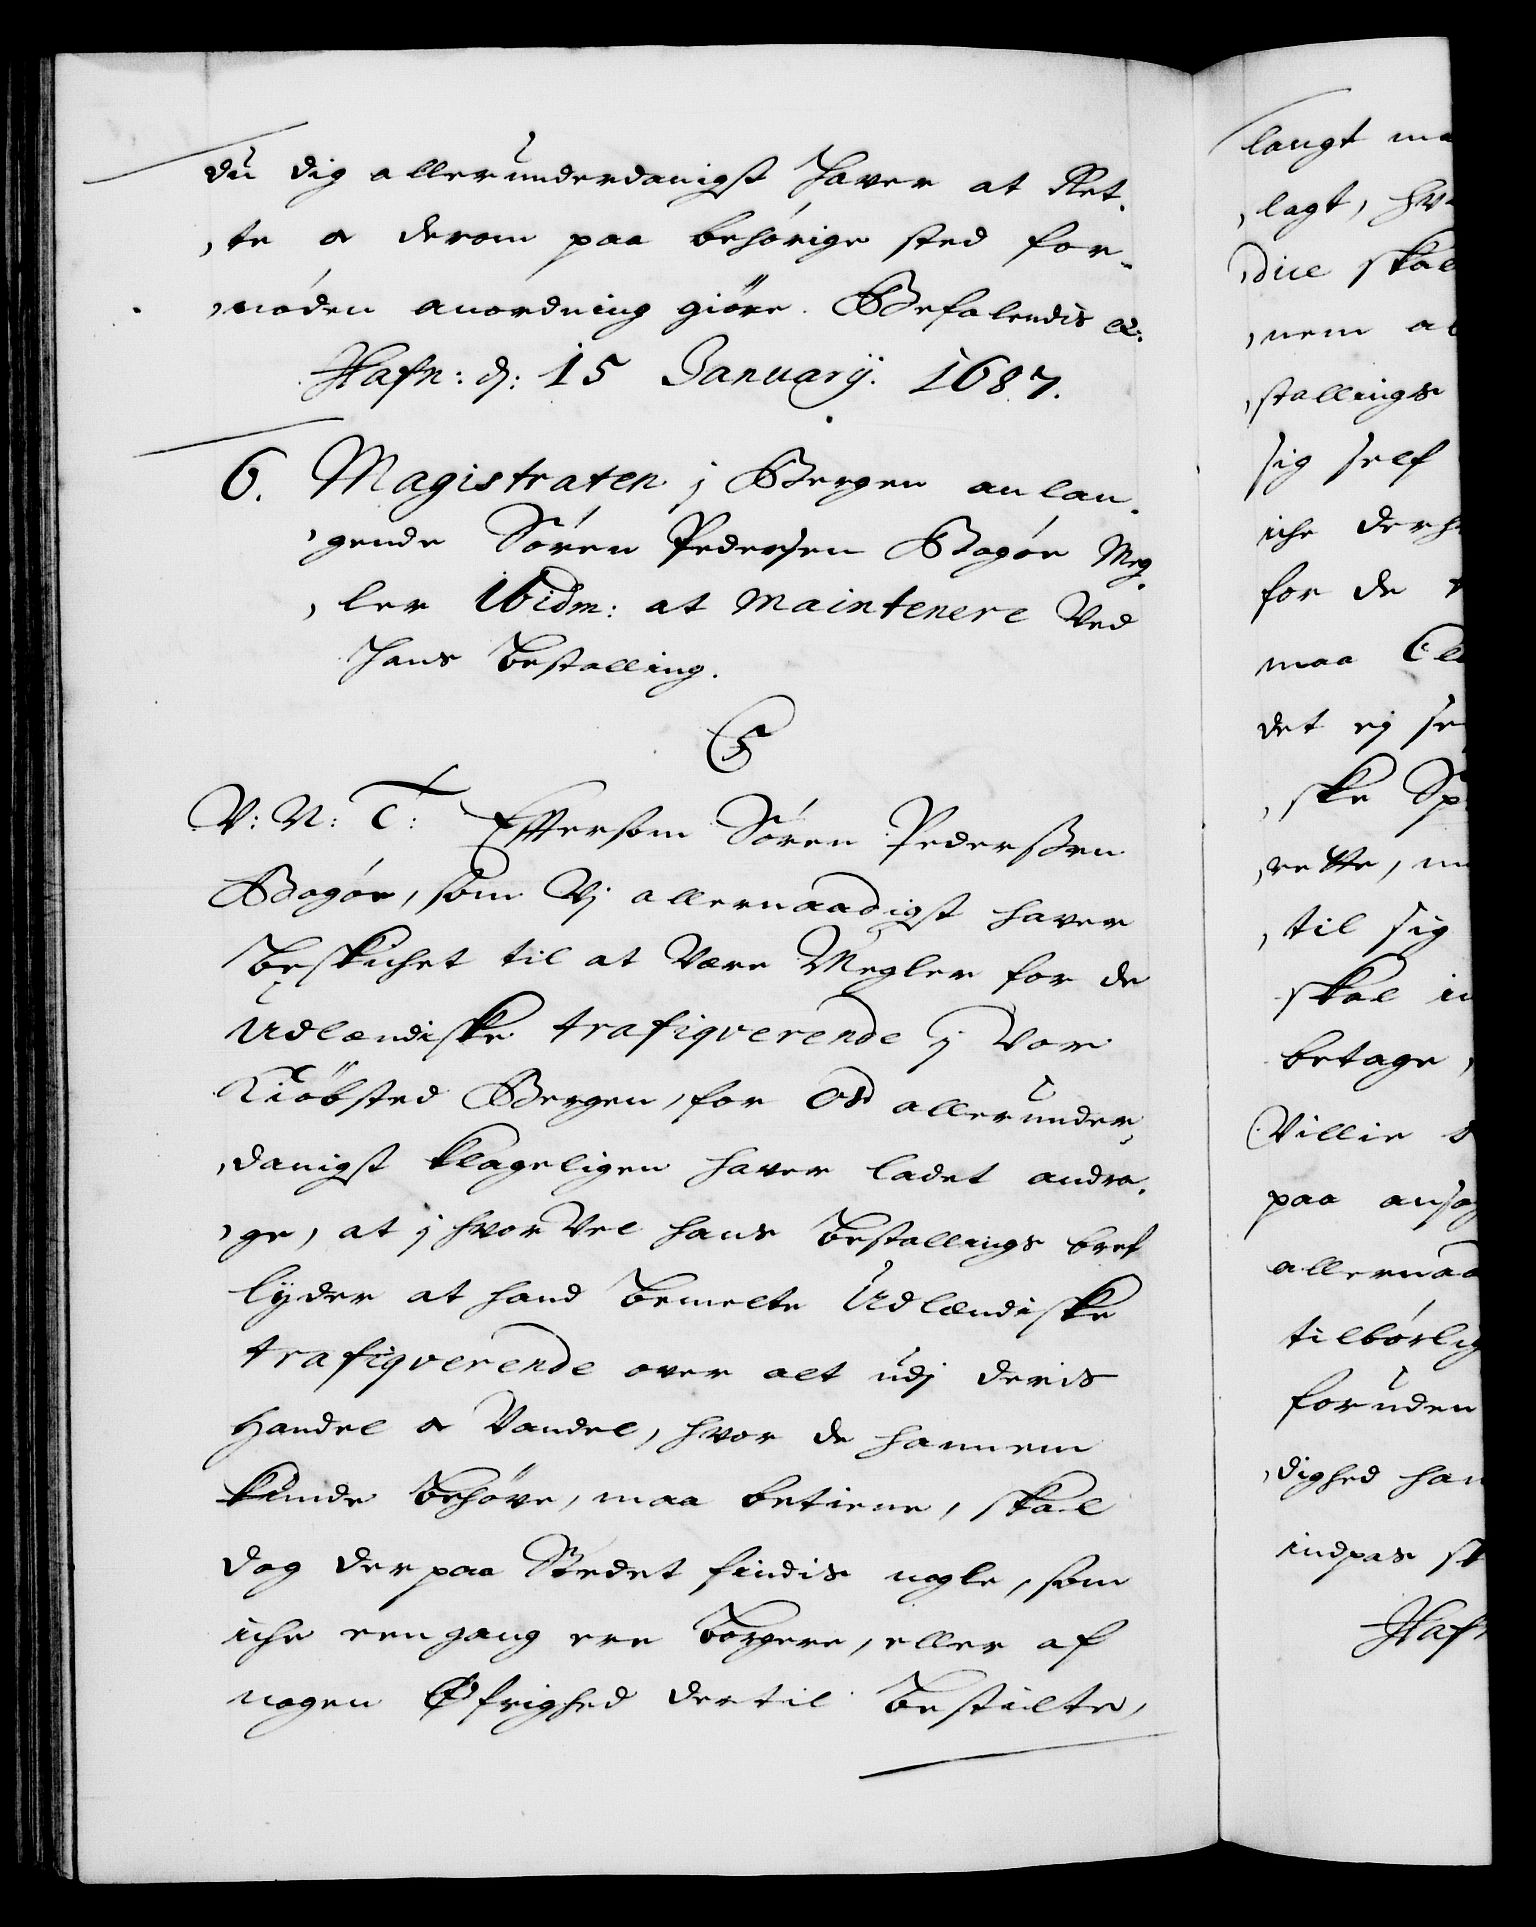 du dig allerunderdanigst haver at Ret-
,te og derom paa behörige sted for-
,nöden anordning giöre. Befalendis &:
Hafn: d: 15 Januarij. 1687.
6. Magistraten j Bergen anlan-
,gende Sören Pedersen Bagöe Meg-
,ler ibidm: at maintenere Ved
hans bestalling.
C5
V: N: T: Eftersom Sören Pederssen
Bagöe, som Vj allernaadigst haver
beskichet til at være Megler for de
Udlændiske trafiqverende j Vor
Kiöbsted Bergen, for Os allerunder-
,danigst klageligen haver ladet andra-
,ge, at j hvor Vel hans bestallings bref
lyder at hand bemelte Udlændiske
trafiqverende over alt udj deris
Handel og Vandel, hvor de hannem
kunde behöve, maa betiene, skal
dog der paa Stedet findis nogle, som
iche een gang ere borgere, eller af
nogen Öfrighed der til bestilte,
langt
,lagt,
,dice skal
,nem
,stallings
sig self
iche
for de
maa
det ej
,ske
,rette,
,til sig
skal
betage,
Villie
paa
tilbörlig
foruden
,dighed
indpas